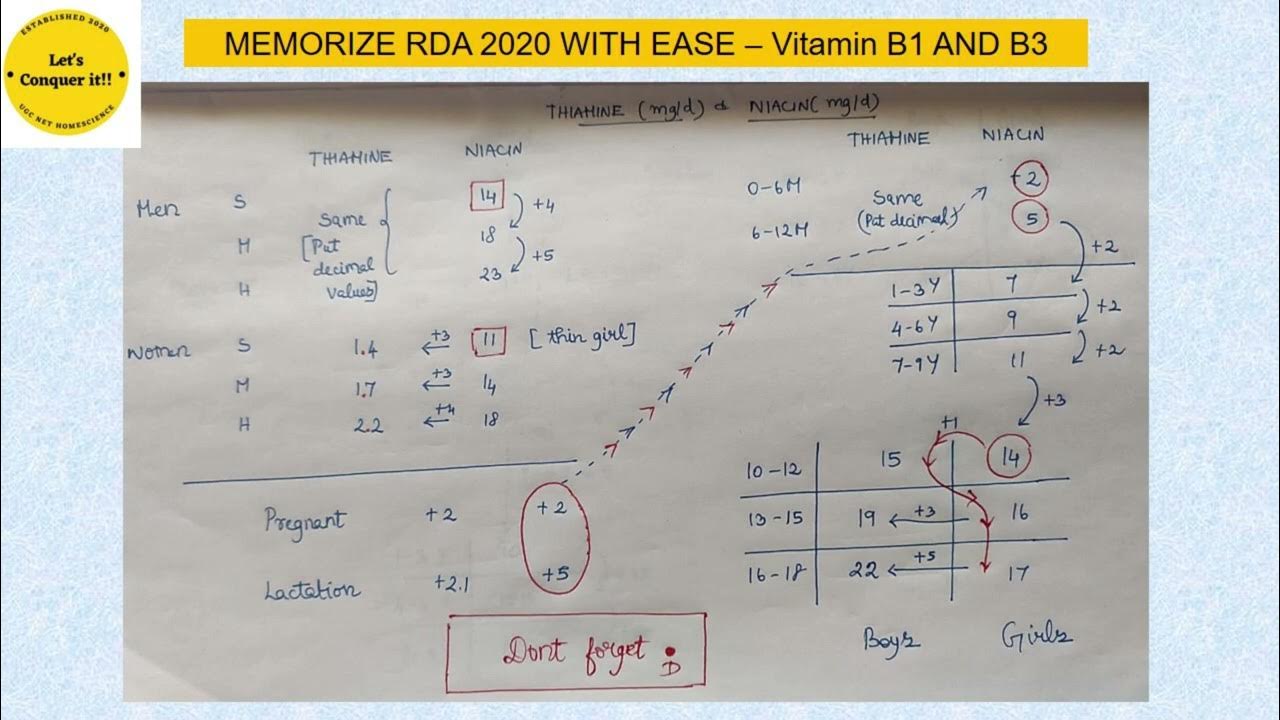 ESTABLISHED 2020
Let's
Conquer it!!
UGC NET HOMESCIENCE
MEMORIZE RDA 2020 WITH EASE – Vitamin B1 AND B3
THIAMINE (mg/d) & NIACIN (mg/d)
THIAMINE NIACIN
Men S 14 +4
Same
M [Put 18 +5
decimal
H values] 23
Women S 1.4 +3 11 [thin girl]
M 1.7 +3 14
H 2.2 +4 18
Pregnant +2 +2
Lactation +2.1 +5
Dont forget .
D
THIAMINE NIACIN
0-6M Same +2
6-12M (Put decimal) 5
+2
1-3Y 7
+2
4-6Y 9
+2
7-9Y 11
+3
+1
10-12 15 14
13-15 19 +3 16
16-18 22 +5 17
Boys Girls